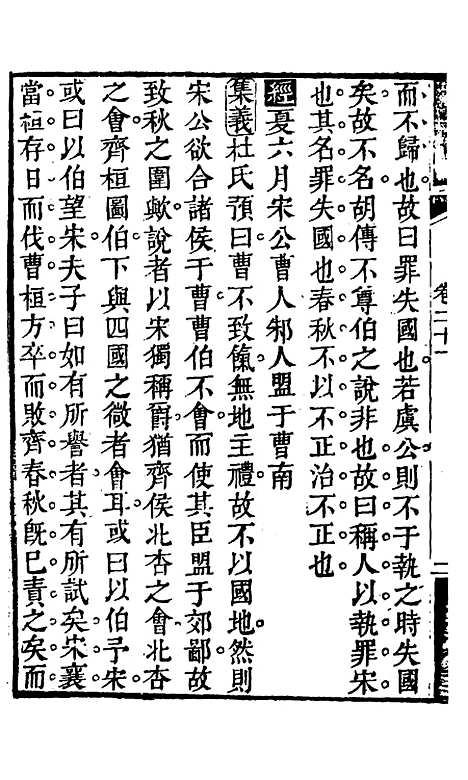 而不歸也故曰罪失國也若虞公則不于執之時失國
矣故不名胡傳不尊伯之說非也故曰稱人以執罪宋
也其名罪失國也春秋不以不正治不正也
經夏六月宋公曹人邾人盟于曹南
集義杜氏預曰曹不致餼無地主禮故不以國地然則
宋公欲合諸侯于曹曹伯不會而使其臣盟于郊鄙故
致秋之圍歟說者以宋獨稱爵猶齊侯北杏之會北杏
之會齊桓圖伯下與四國之微者會耳或曰以伯予宋
或曰以伯望宋夫子曰如有所譽者其有所試矣宋襄
當桓存日而伐曹桓方卒而敗齊春秋旣已責之矣而
卷二十一